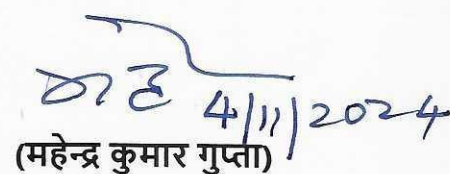 4/11/2024
(महेन्द्र कुमार गुप्ता)